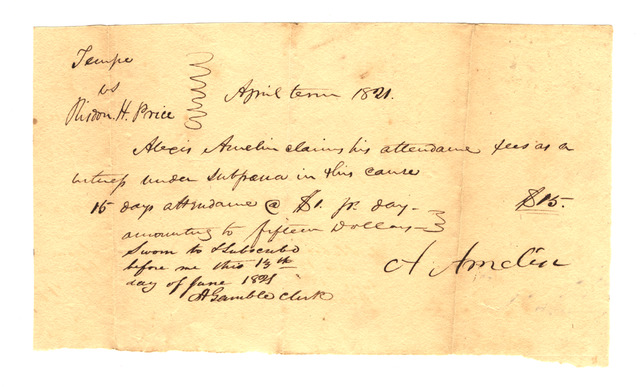 Tempe
vs
Risdon. H. Price
April term 1821.
Alexis Amelin claims his attendance fees as a
witness under Subpoena in this cause
15 days attendance @ $1. pr. day - $15.
amounting to fifteen Dollars
Sworn to & Subscribed
before me this 14th
day of June 1821
A Gamble Clerk
A Amelin